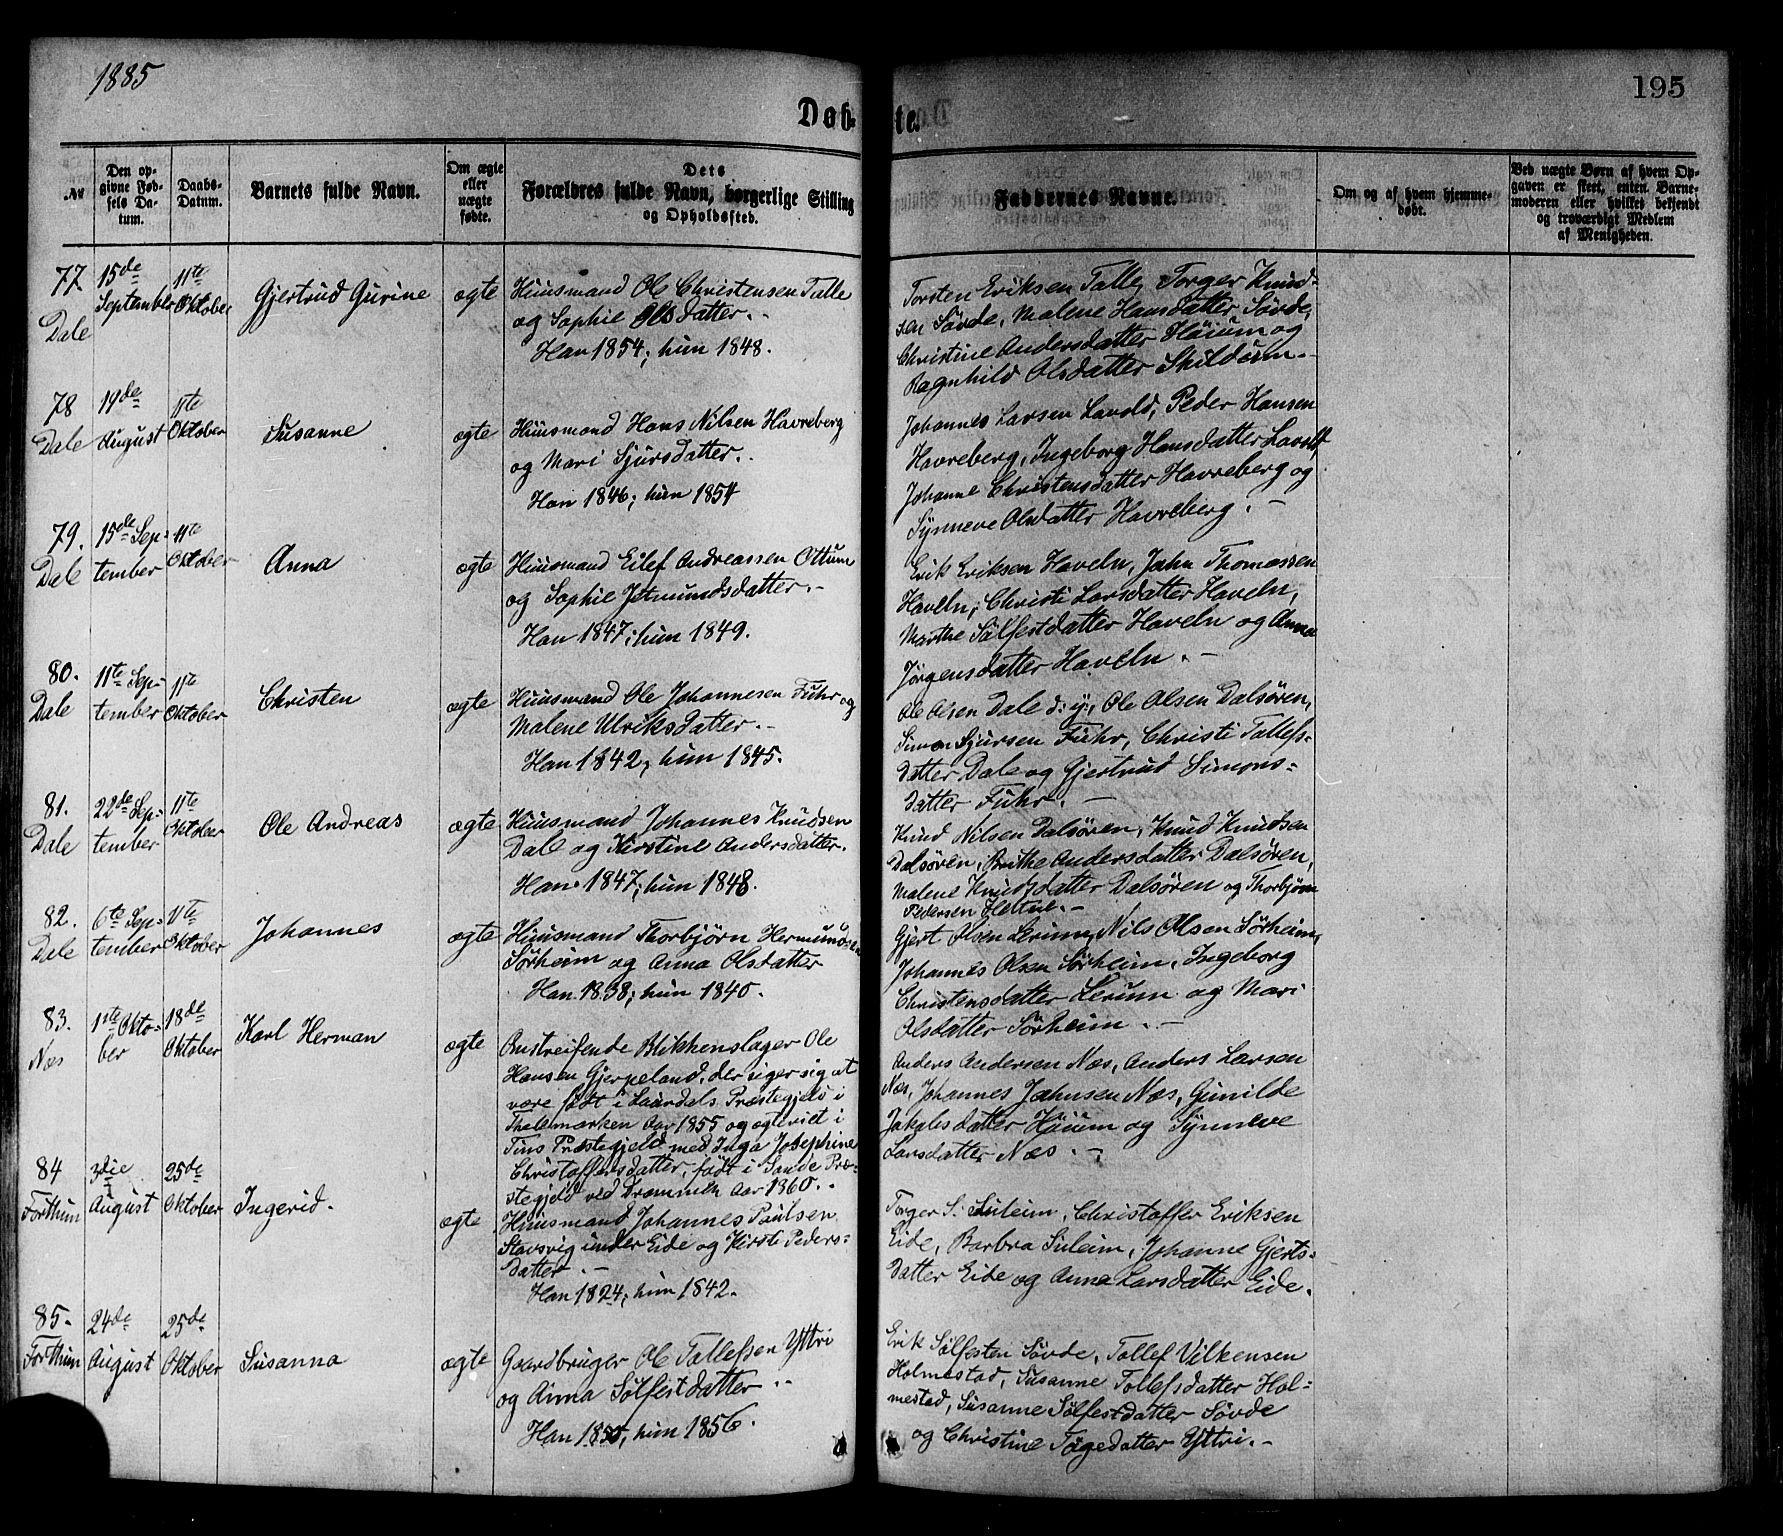 1885
195
Døb-
te.
№
Den op-
givne Fød-
sels Da-
tum.
Daabs-
Datum.
Barnets fulde Navn.
Om ægte
eller
uægte
fødte.
Dets
Forældres fulde Navn, borgerlige Stilling
og Opholdssted.
Faddernes Navne.
Om og af hvem hjemme-
døbt.
Ved uægte Børn af hvem Op-
gaven er skeet, enten Barne-
moderen eller hvilket bekjendt
og troværdigt Medlem
af Menigheden.
77.
Dale
15de
September
11te
Oktober
Gjertrud Gurine
ægte
Huusmand Ole Christensen Talle
og Sophie Olsdatter.-
Han 1854; hun 1848.
Torsten Eriksen Talle, Torger Knud-
sen Søvde, Malene Hansdatter Søvde,
Christine Andersdatter Høium og
Ragnhild Olsdatter Skildum.-
78
Dale
19de
August
11te
Oktober
Susanne
ægte
Huusmand Hans Nilsen Havreberg
og Mari Sjursdatter.
Han 1846; hun 1854
Johannes Larsen Lavold, Peder Hansen
Havreberg, Ingeborg Hansdatter Lavold,
Johanne Christensdatter Havreberg og
Synneve Olsdatter Havreberg. -
79.
Dale
15de Sep-
tember
11te
Oktober
Anna
ægte
Huusmand Eilef Andreassen Ottum
og Sophie Jetmundsdatter.-
Han 1847; hun 1849.
Erik Eriksen Haveln, John Thomassen
Haveln, Christi Larsdatter Haveln,
Marthe Sølfestdatter Haveln og Anna
Jørgensdatter Haveln. -
80.
Dale
11te Sep-
tember
11te
Oktober
Christen
ægte
Huusmand Ole Johannesen Fuhr og
Malene Ulriksdatter.-
Han 1842; hun 1845.
Ole Olsen Dale d. y., Ole Olsen Dalsøren,
Simon Sjursen Fuhr, Christi Tollefs-
datter Dale og Gjertrud Simons-
datter Fuhr. -
81.
Dale
22de Sep-
tember
11te
Oktober
Ole Andreas
ægte
Huusmand Johannes Knudsen
Dale og Kirstine Andersdatter.
Han 1847; hun 1848.
Knud Nilsen Dalsøren, Knud Knudsen
Dalsøren, Brithe Andersdatter Dalsøren,
Malene Knudsdatter Dalsøren og Thorbjørn
Pedersen Hettne.-
82.
Dale
6te Sep-
tember
11te
Oktober
Johannes
ægte
Huusmand Thorbjørn Hermundsen
Sørheim og Anna Olsdatter
Han 1838; hun 1840.
Gjert Olsen Lerum, Nils Olsen Sørheim,
Johannes Olsen Sørheim, Ingeborg
Christensdatter Lerum og Mari
Olsdatter Sørheim. -
83.
Næs
1ste Okto-
ber
18de
Oktober
Karl Herman
ægte
Omstreifende Blikkenslager Ole
Hansen Gjerpeland, der siger sig at
være født i Laurdals Præstegjeld i
Thelemarken Aar 1855 og ægteviet i
Tins Præstegjeld med Inga Josephine
Christoffersdatter, født i Sande Præ-
stegjeld ved Drammen Aar 1860.-
Anders Andersen Næs, Anders Larsen
Næs, Johannes Johnsen Næs, Gunilde
Jakobsdatter Høium og Synneve
Larsdatter Næs. -
84
Forthun
3die
August
25de
Oktober
Ingerid.
ægte
Huusmand Johannes Paulsen
Stavsvig under Eide og Kirsti Peders-
datter. -
Han 1824; hun 1842.
Torger S. Suleim, Christoffer Eriksen
Eide, Barbra Suleim, Johanne Gjerts-
datter Eide og Anna Larsdatter Eide.
85.
Forthun
24de
August
25de
Oktober
Susanna
ægte
Gaardbruger Ole Tollefsen Yttri
og Anna Sølfestdatter.-
Han 1850; hun 1856.
Erik Sølfesten Søvde, Tollef Vilkensen
Holmestad, Susanne Tollefsdatter Hol-
mestad, Susanne Sølfestdatter Søvde
og Christine Tøgedatter Yttri.-